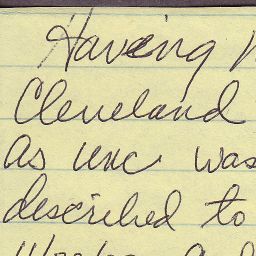 Having
Cleveland
as unc was
described to